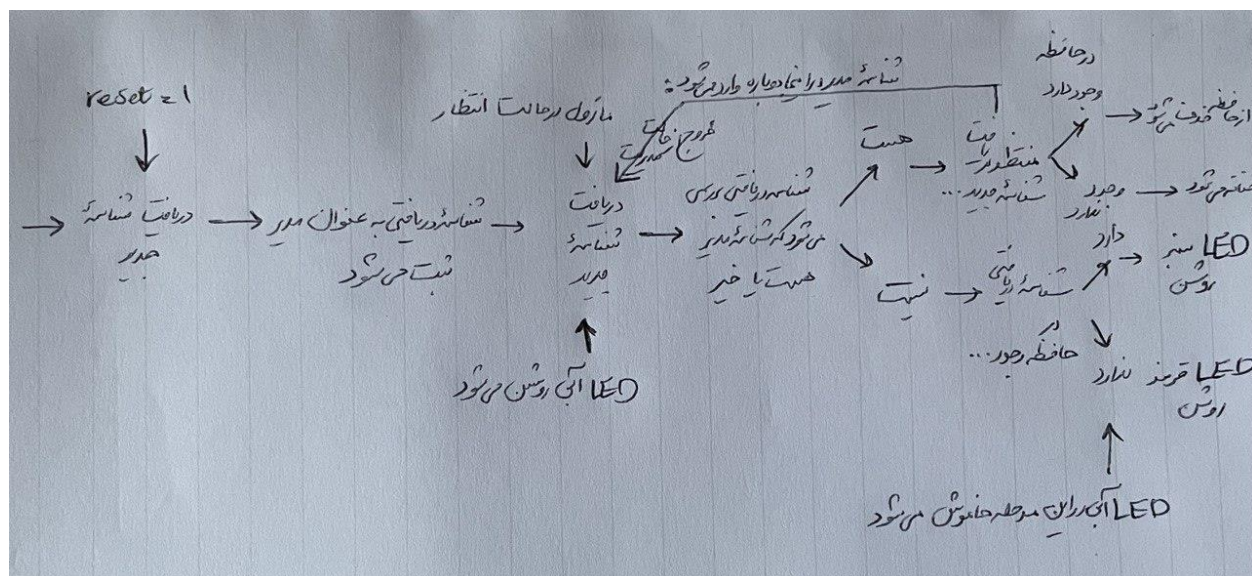 reset = 1
دریافت شناسهٔ
جدید
شناسهٔ دریافتی به عنوان مدیر
ثبت می‌شود
ماژول در حالت انتظار
دریافت
شناسهٔ
جدید
LED آبی روشن می‌شود
شناسهٔ مدیر در اینجا دوباره وارد می‌شود:
خروج از حالت
مدیریت
شناسه دریافتی بررسی
می‌شود که شناسهٔ مدیر
هست یا خیر
هست
منتظر دریافت
شناسهٔ جدید...
در حافظه
وجود دارد
از حافظه حذف می‌شود
وجود
ندارد
می‌شود
نیست
شناسهٔ دریافتی
در
حافظه وجود...
دارد
LED سبز
روشن
ندارد
LED قرمز
روشن
LED آبی در این مرحله خاموش می‌شود